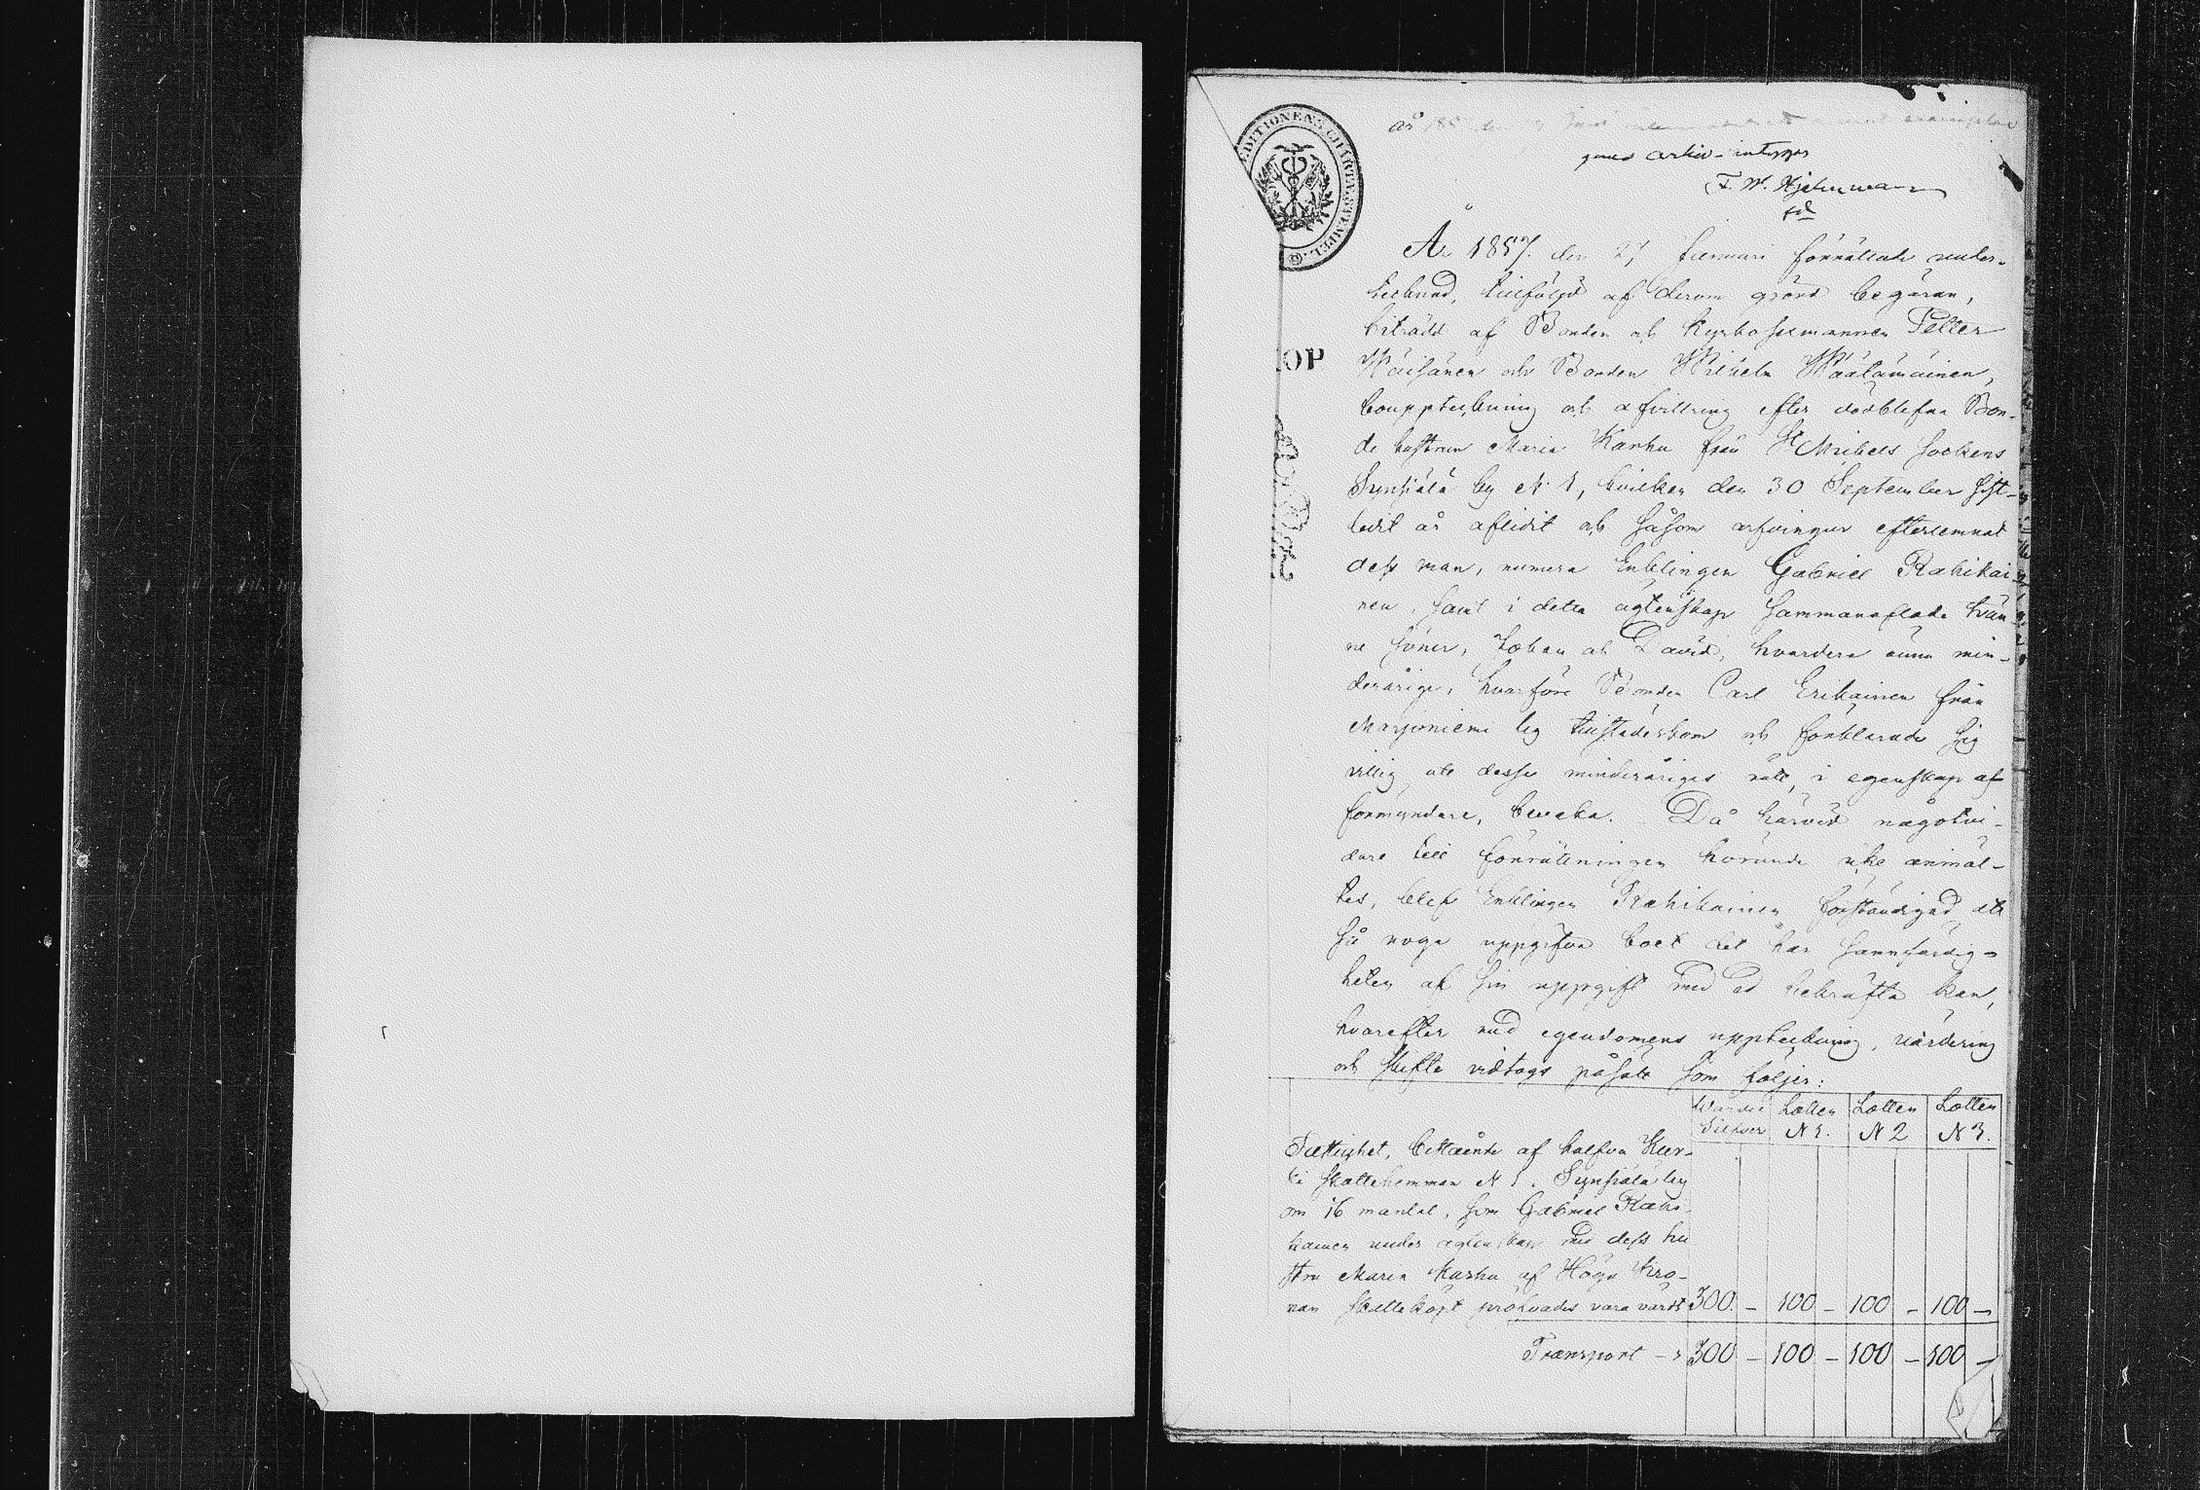 EDITIONENS CHARTÆ STEMPEL.
gens arkiv-
F. W.
År 1857 den 27 Februari förrättade under-
tecknad, tillföljd af derom gjord begäran,
biträdd af Bonden och Kyrkosexmannen Petter
OP
Wäisänen och Bonden Wilhelm Määtämäinen,
bouppteckning och afvittring efter dödblefna Bon-
de hustrun Maria Karhu från St Michels Sockens
Synsiälä by N 1, hvilken den 30 September sist-
ledit år aflidit och såsom arfvingar efterlemnat
dess man, numera Enklingen Gabriel Rahikai-
nen, samt i detta ägtenskap sammanaflade tvän-
ne söner, Johan och David, hvardera ännu min-
deråriga, hvarföre Bonden Carl Erikainen från
Marjoniemi by tillstädeskom och förklarade sig
villig att desse minderåriges rätt, i egenskap af
förmyndare, bevaka. Då härvid någotvi-
dare till förrättningen hörande icke anmäl-
tes, blef Enklingen Rahikainen förständigad att
så noga uppgifva boet det han sannfärdig-
heten af sin uppgift med ed bekräfta kan,
hvarefter med egendomens uppteckning, värdering
och skifte vidtogs påsätt som följer:
Silfver Lotten N 1. Lotten N 2 Lotten N 3.
Fastighet, bestående af halfva Kur-
ki skattehemman N 1. Synsiälä by
om 16 mantal, som Gabriel Rahi-
kainen under ägtenskap med dess hu
stru Maria Karhu af Höga Kro-
nan skatteköpt pröfvades vara värdt 300 – 100 – 100 – 100 –
Transport – 300 – 100 – 100 – 100 –